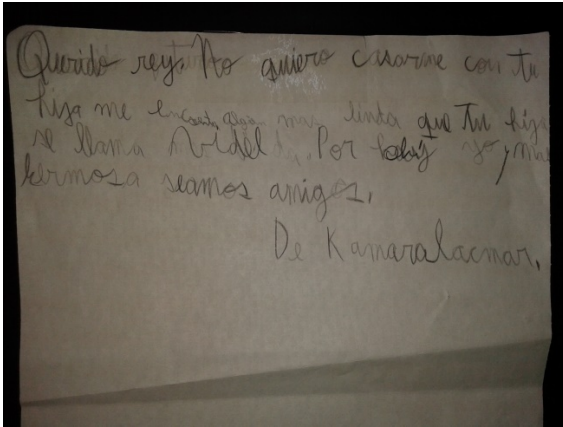 Querido rey. No quiero casarme con tu
hija me más linda que tu hija
se llama Por yo, mas
hermosa seamos amigos.
De Kamaralacmar.